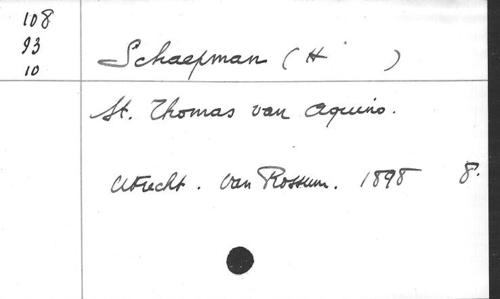 108
93
10
Schaepman (H )
St. Thomas van Aquino.
Utrecht. Van Rossum. 1898 8.